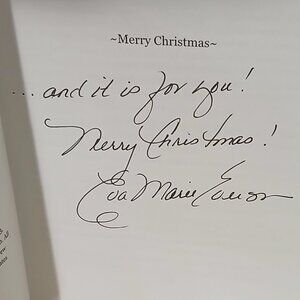 ~Merry Christmas~
... and it is for you!
Merry Christmas!
Eva Marie Everson